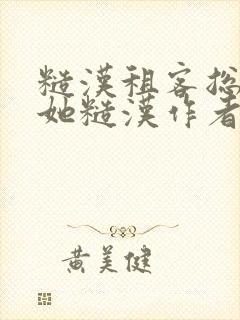 糙漢租客撩
她糙漢作者
黄美健